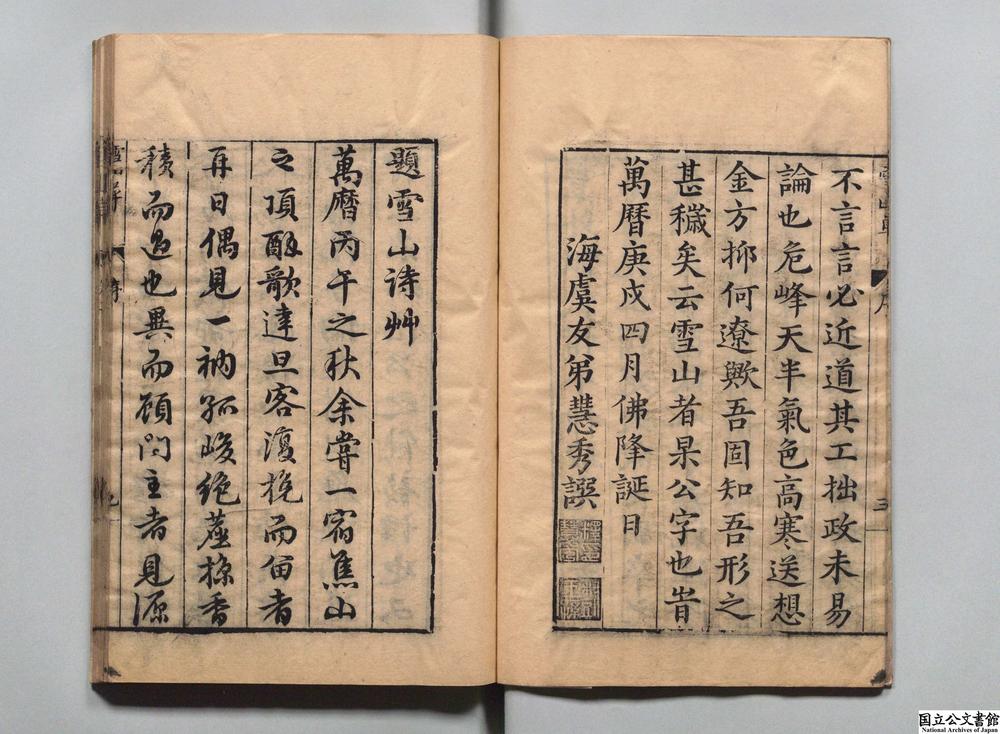 不言言必近道其工拙政未易
論也危峰天半氣色高寒送想
金方抑何遼歟吾固知吾形之
甚穢矣云雪山者杲公字也旹
萬曆庚戌四月佛降誕日
海虞友弟慧秀譔
題雪山詩艸
萬曆丙午之秋余嘗一宿焦山
之頂酣歌達旦客復挽而留者
再日偶見一衲孤峻絶塵掠香
積而過也異而顧問主者見源
国立公文書館
National Archives of Japan